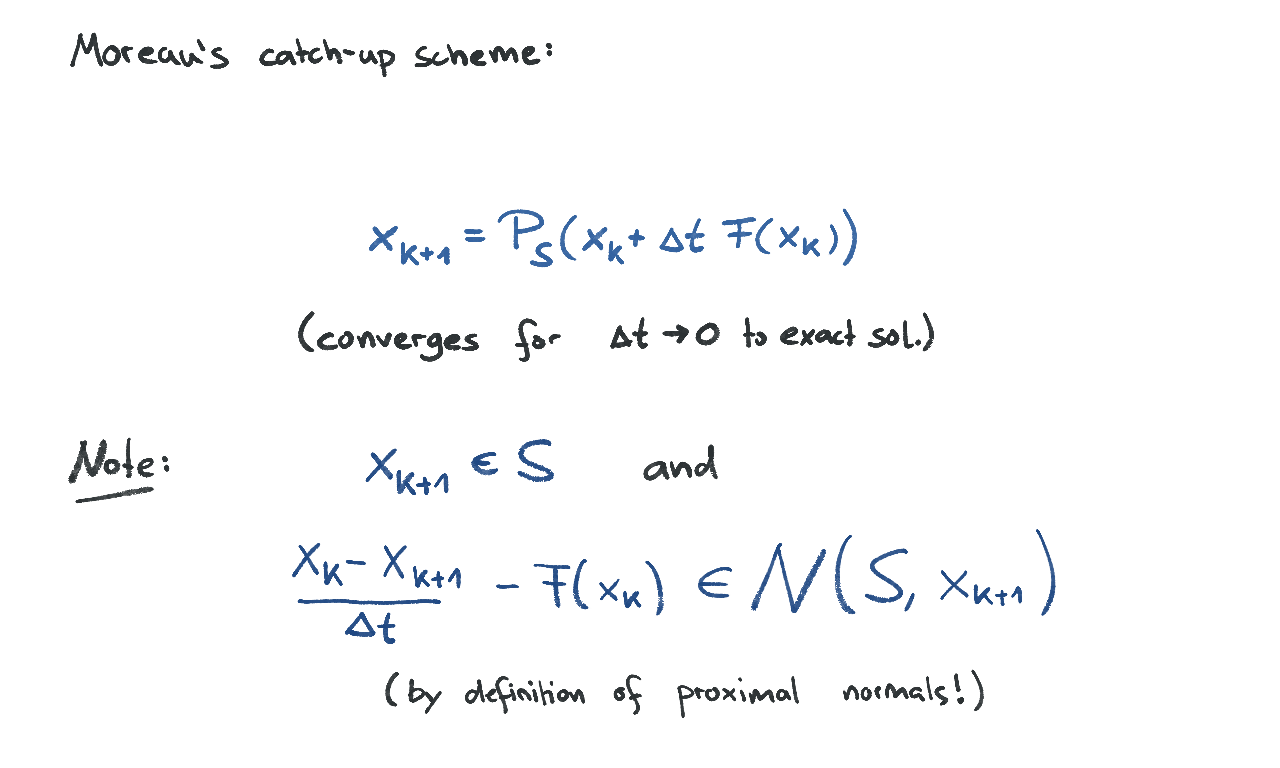 Moreau's catch-up scheme:
x_{k+1} = P_S(x_k + Δt F(x_k))
(converges for Δt → 0 to exact sol.)
Note: x_{k+1} ∈ S and
\frac{x_k - x_{k+1}}{Δt} - F(x_k) ∈ N(S, x_{k+1})
(by definition of proximal normals!)